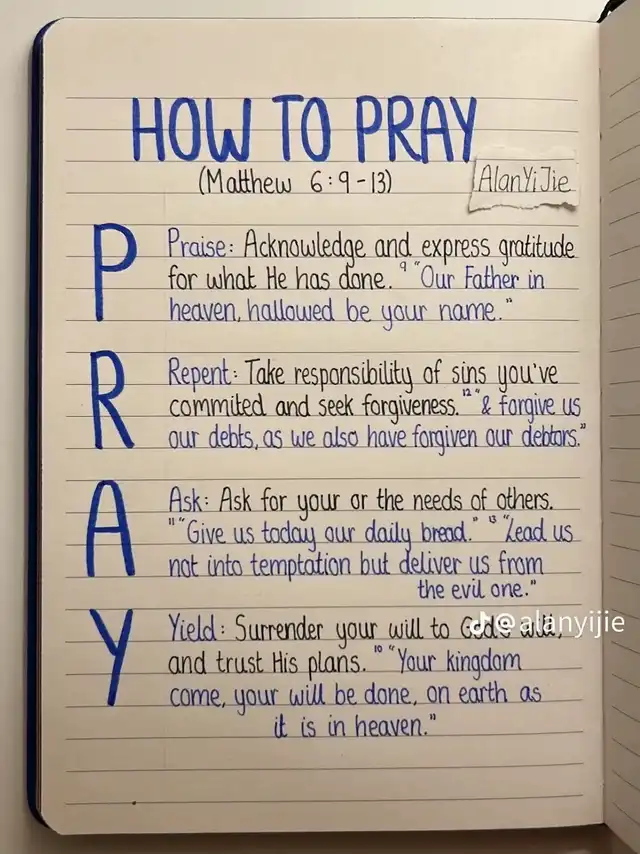 HOW TO PRAY
(Matthew 6:9-13)
AlanYiJie
P
Praise: Acknowledge and express gratitude
for what He has done. ⁹ "Our Father in
heaven, hallowed be your name."
R
Repent: Take responsibility of sins you've
commited and seek forgiveness. ¹² "& forgive us
our debts, as we also have forgiven our debtors."
A
Ask: Ask for your or the needs of others.
¹¹ "Give us today our daily bread." ¹³ "Lead us
not into temptation but deliver us from
the evil one."
Y
Yield: Surrender your will to God's will,
@alanyijie
and trust His plans. ¹⁰ "Your kingdom
come, your will be done, on earth as
it is in heaven."